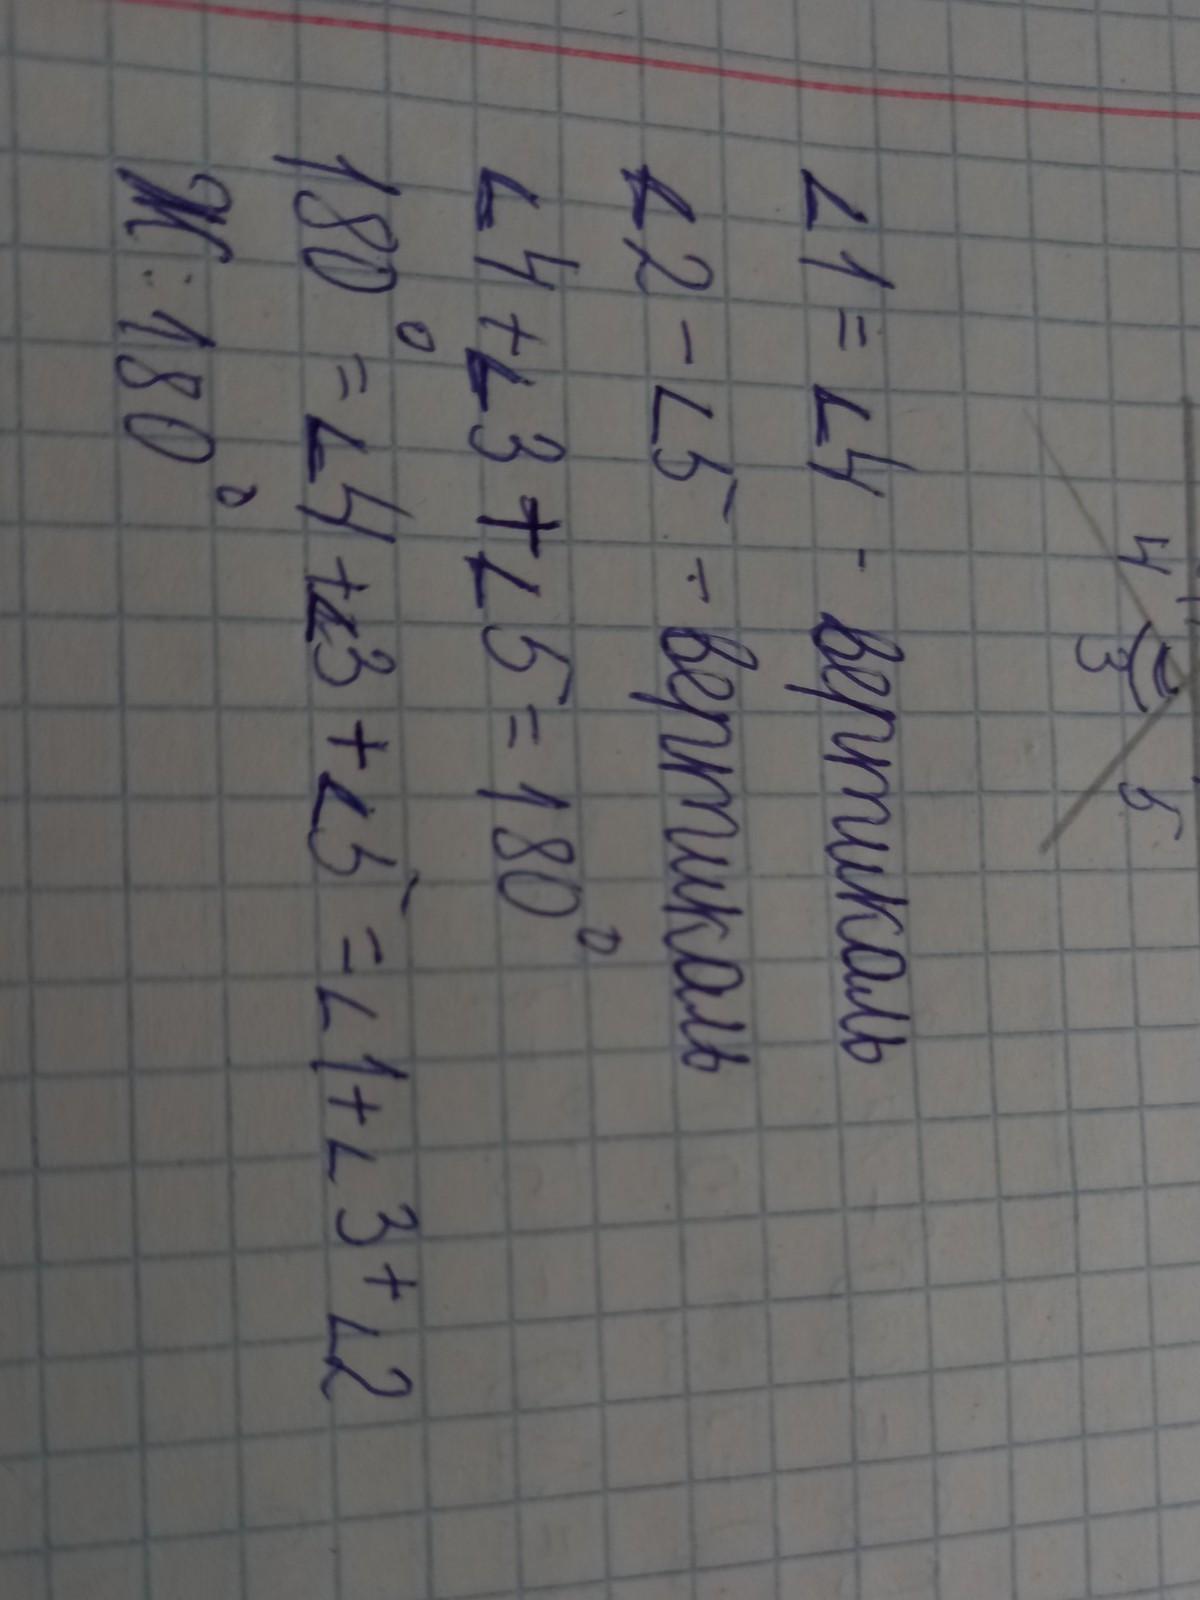 4 3 5
∠1 = ∠4 - вертикаль
∠2 - ∠5 - вертикаль
∠4 + ∠3 + ∠5 = 180°
180° = ∠4 + ∠3 + ∠5 = ∠1 + ∠3 + ∠2
: 180°